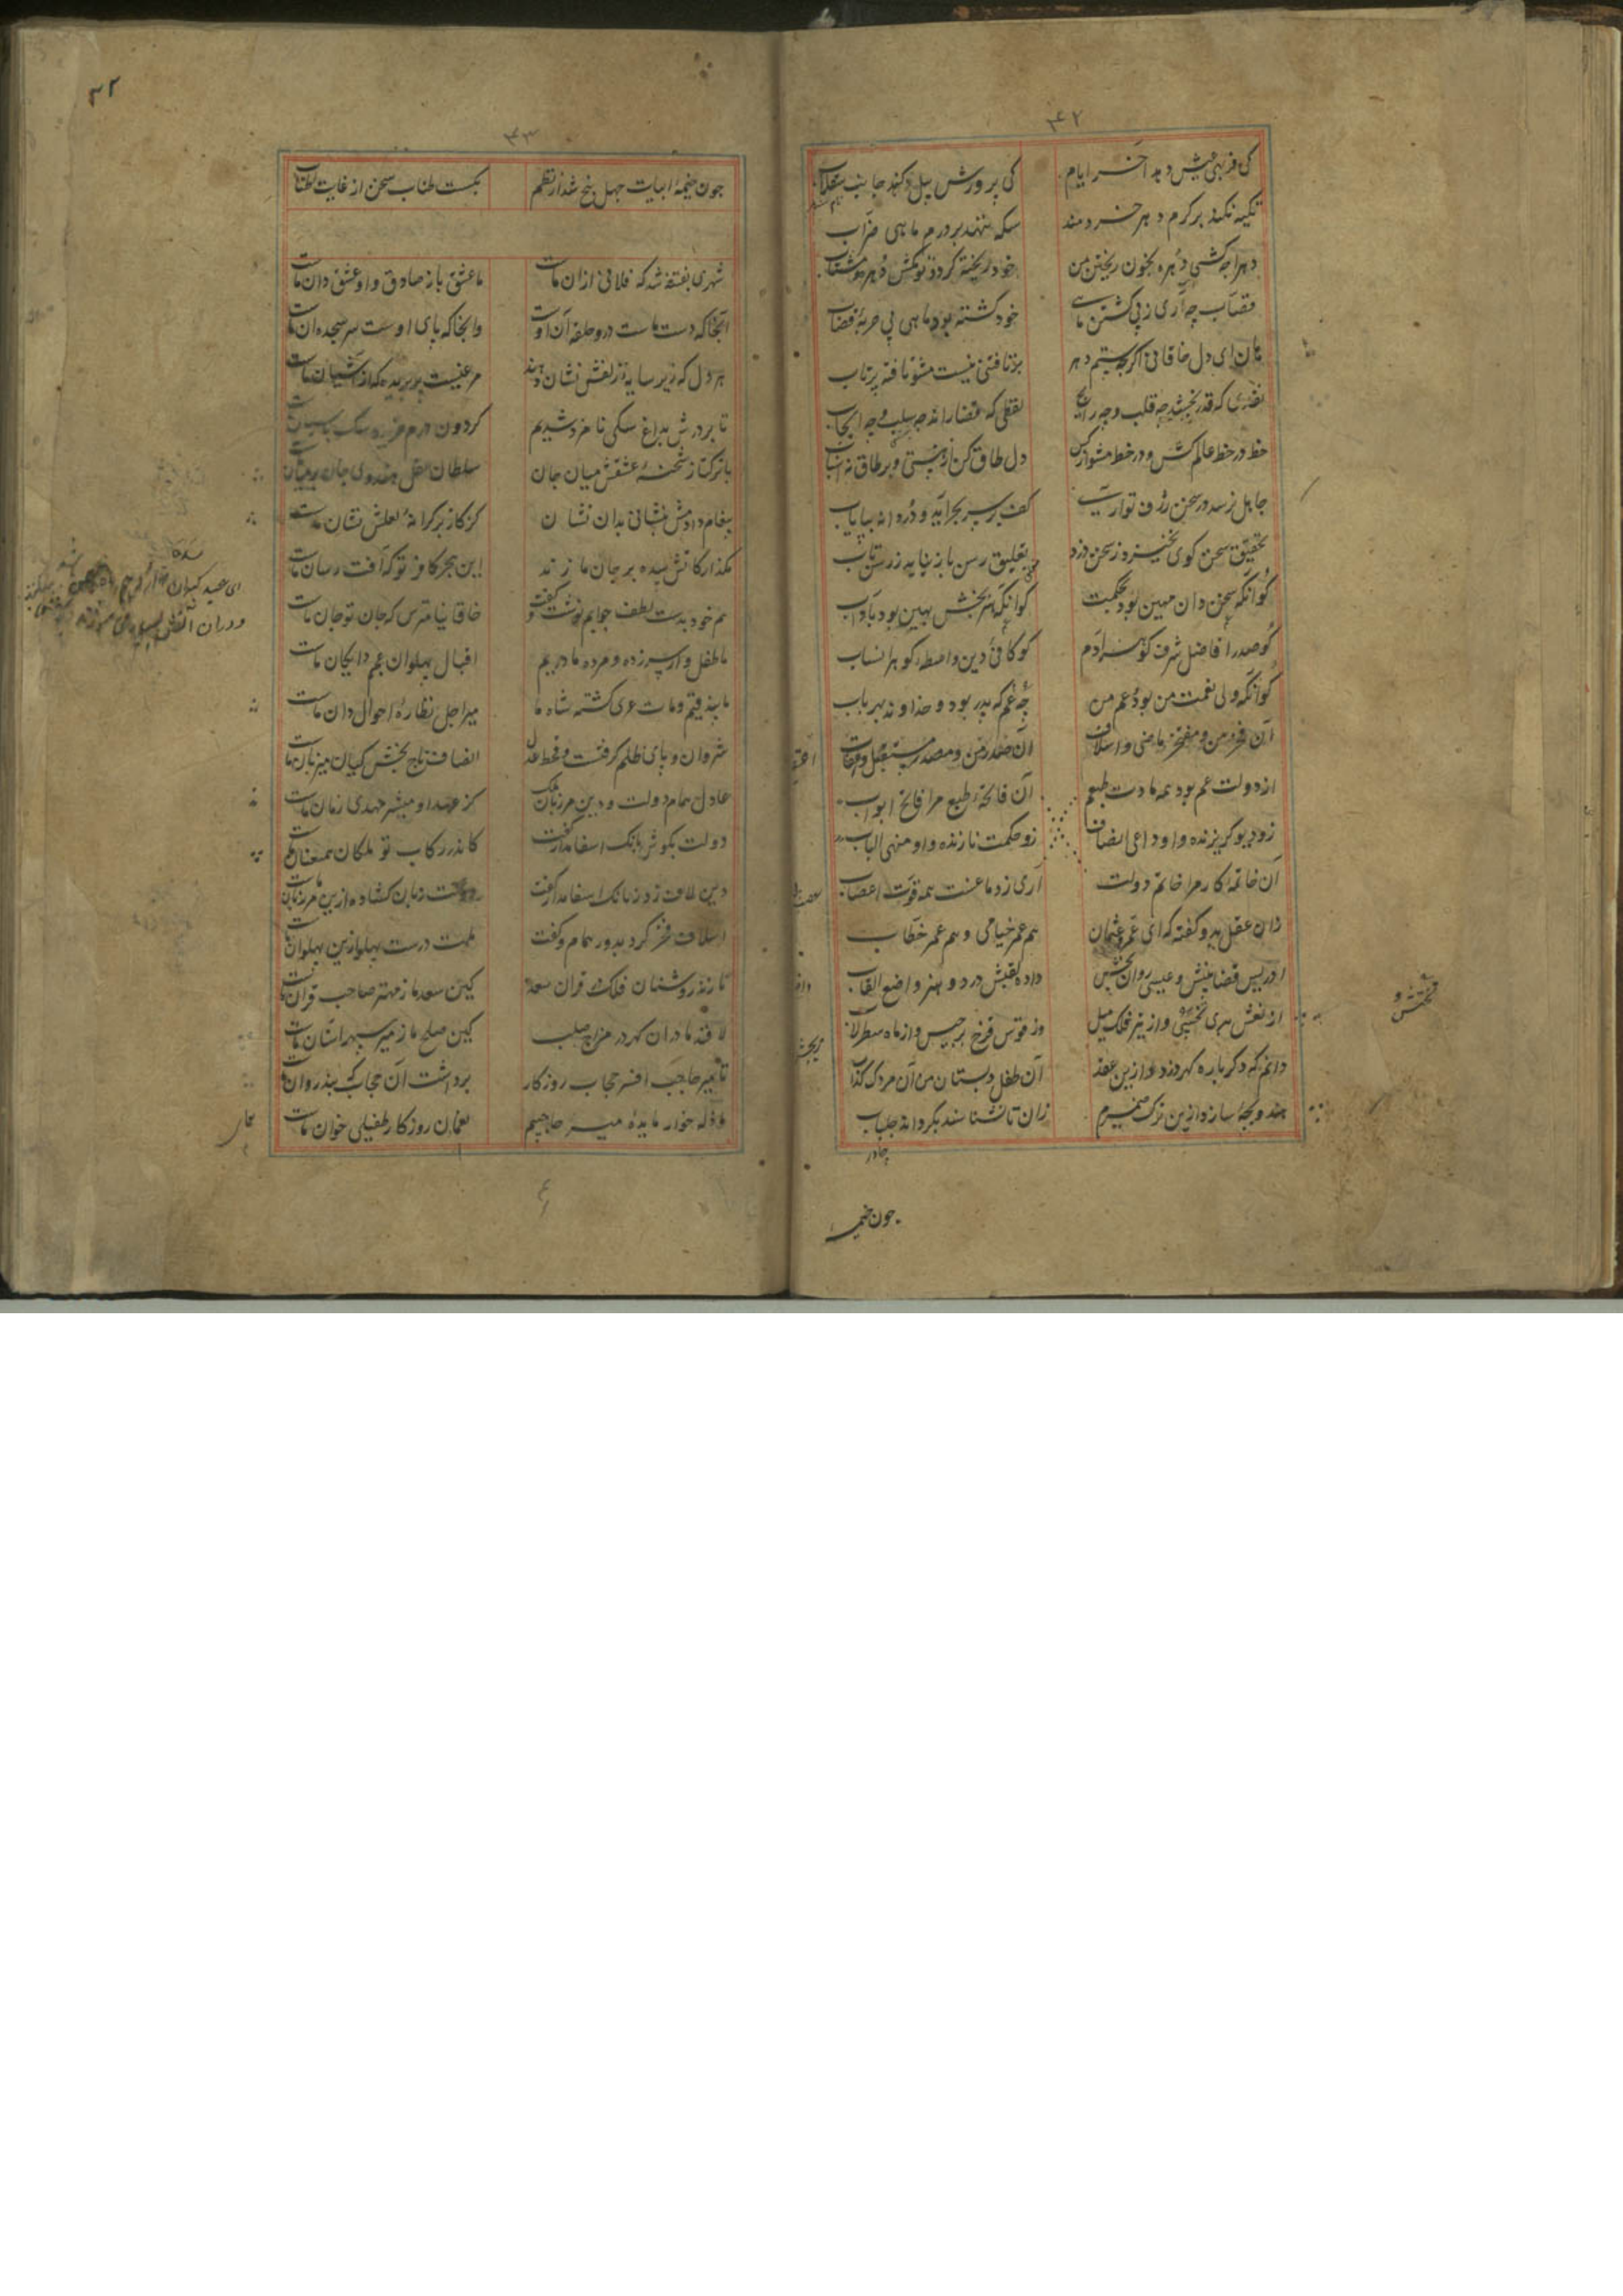 ۴۲
کی فربهی عیش دهد آخر ایام کی پرورش پیل کند جانب سقلاب
تکیه نکند بر کرم دهر خردمند سکه ننهند بر درم ماهی ضراب
دهرا چه کشی دهره بخون ریختن من خود ریخته کردد تو مکش دهره و مشتاب
قصاب چه آری ز پی کشتن ماهی خود کشته بود ماهی بی حربهٔ قصاب
هان ای دل خاقانی اکر چه ستم دهر برتافتنی نیست مشو تافته برتاب
نقدی که قدر بخشد چه قلب و چه رایج لفظی که قضا راند چه سلب و چه ایجاب
خط در خط عالم کش و در خط مشو از کس دل طاق کن از هستی و بر طاق نه اسباب
جاهل نرسد در سخن ژرف تو آریت کف بر سر بحر آید و دره اند بپایاب
تحقیق سخن کوی نخیزد ز سخن دزد تعلیق رسن باز نیاید ز رسن تاب
کو آنکه سخن دان مهین بود بحکمت کو آنکه هنر بخش بهین بود بآداب
کو صدر افاضل شرف کوهر آدم کو کافی دین واسطهٔ کوهر انساب
کو آنکه ولی نعمت من بود و عم من چه عم که پدر بود و خداوند بهر باب
آن فخر من و مفتخر ماضی و اسلاف آن صدر من و مصدر مستقبل و اعقاب
از دولت عم بود همه مادت طبعم آن فاتحهٔ طبع مرا فاتح ابواب
زو دیو کریزنده و او داعی انصاف زو حکمت نازنده و او منهی الباب
آن خاتمهٔ کار مرا خاتم دولت آری ز دماغست همه قوت اعصاب
زان عقل بدو کفته که ای عمر عثمان هم عمر خیامی و هم عمر خطاب
ادریس قضا بینش و عیسی روان بخش داده لقبش در دو هنر واضع القاب
از نعش هدی تختش و از تیر فلک میل وز قوس قزح برجیس و از ماه سطرلاب
دانم که دکر باره کهر دزدد ازین عقد آن طفل دبستان من آن مردک کذاب
هندو بچهٔ سازد ازین ترک ضمیرم زان تا نشناسند بکرداند جلباب
چادر
چون خیمه
۴۳
چون خیمهٔ ابیات چهل پنج شد از نظم بکسست طناب سخن از غایت اطناب
شهری بفتنه شد که فلانی از آن ماست ما عشق باز صادق و او عشق دان ماست
آنجا که دست ماست درو حلقه آن اوست وانجا که پای اوست سر سجده ان ماست
هر دل که زیر سایهٔ زلفش نشان دهند مرغیست بربریده که از آشیان ماست
تا بر درش بداغ سکی نامزد شدیم کردون درم خریده سک پاسبان ماست
با ترکتاز شحنهٔ عشقش میان جان سلطان عقل هندوی جان بر میان ماست
پیغام دادمش بنشانی بدان نشان کز کاز بر کرانهٔ لعلش نشان ماست
مکذار کاتش سده بر جان ما زند این هجر کافر تو که آفت رسان ماست
هم خود بدست لطف جوابم نوشت و کفت خاقانیا مترس که جان تو جان ماست
ما طفل وار سر زده و مرده مادریم اقبال پهلوان عجم دایکان ماست
ما بیذقیم و مات عری کشته شاه ما میر اجل نظارهٔ احوال دان ماست
شروان وبای ظلم کرفت و قحط عدل انصاف تاج بخش کیان میزبان ماست
عادل همام دولت و دین مرزبان ملک کز عهد او مبشر مهدی زمان ماست
دولت بکوش بانک اسفا مدار کفت کاندر رکاب تو ملکان همعنان ماست
اسلاف فخر کرد بدور همام و کفت ملت درست پهلو ازین پهلوان ماست
نازند روشنان فلک در قران سعد کین سعد ما ز مهتر صاحب قران ماست
لافند مادران کهر در مزاج صلب کین صلح ما ز میر سپهر آستان ماست
تا میر حاجب افسر حجاب روزکار برداشت آن حجاب که بند روان ماست
ما ذله خوار مایدهٔ میر حاجبیم نعمان روزکار طفیلی خوان ماست